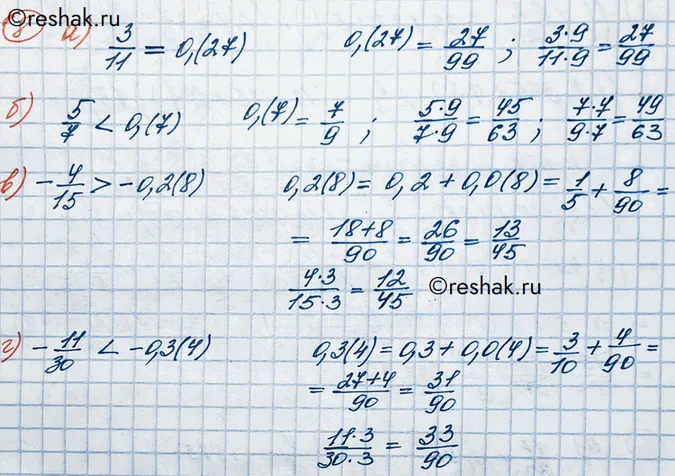 ©reshak.ru
8 а) 3/11 = 0,(27) 0,(27) = 27/99 ; 3·9/11·9 = 27/99
б) 5/7 < 0,(7) 0,(7) = 7/9 ; 5·9/7·9 = 45/63 ; 7·7/9·7 = 49/63
в) -4/15 > -0,2(8) 0,2(8) = 0,2 + 0,0(8) = 1/5 + 8/90 =
= 18+8/90 = 26/90 = 13/45
4·3/15·3 = 12/45 ©reshak.ru
г) -11/30 < -0,3(4) 0,3(4) = 0,3 + 0,0(4) = 3/10 + 4/90 =
= 27+4/90 = 31/90
11·3/30·3 = 33/90